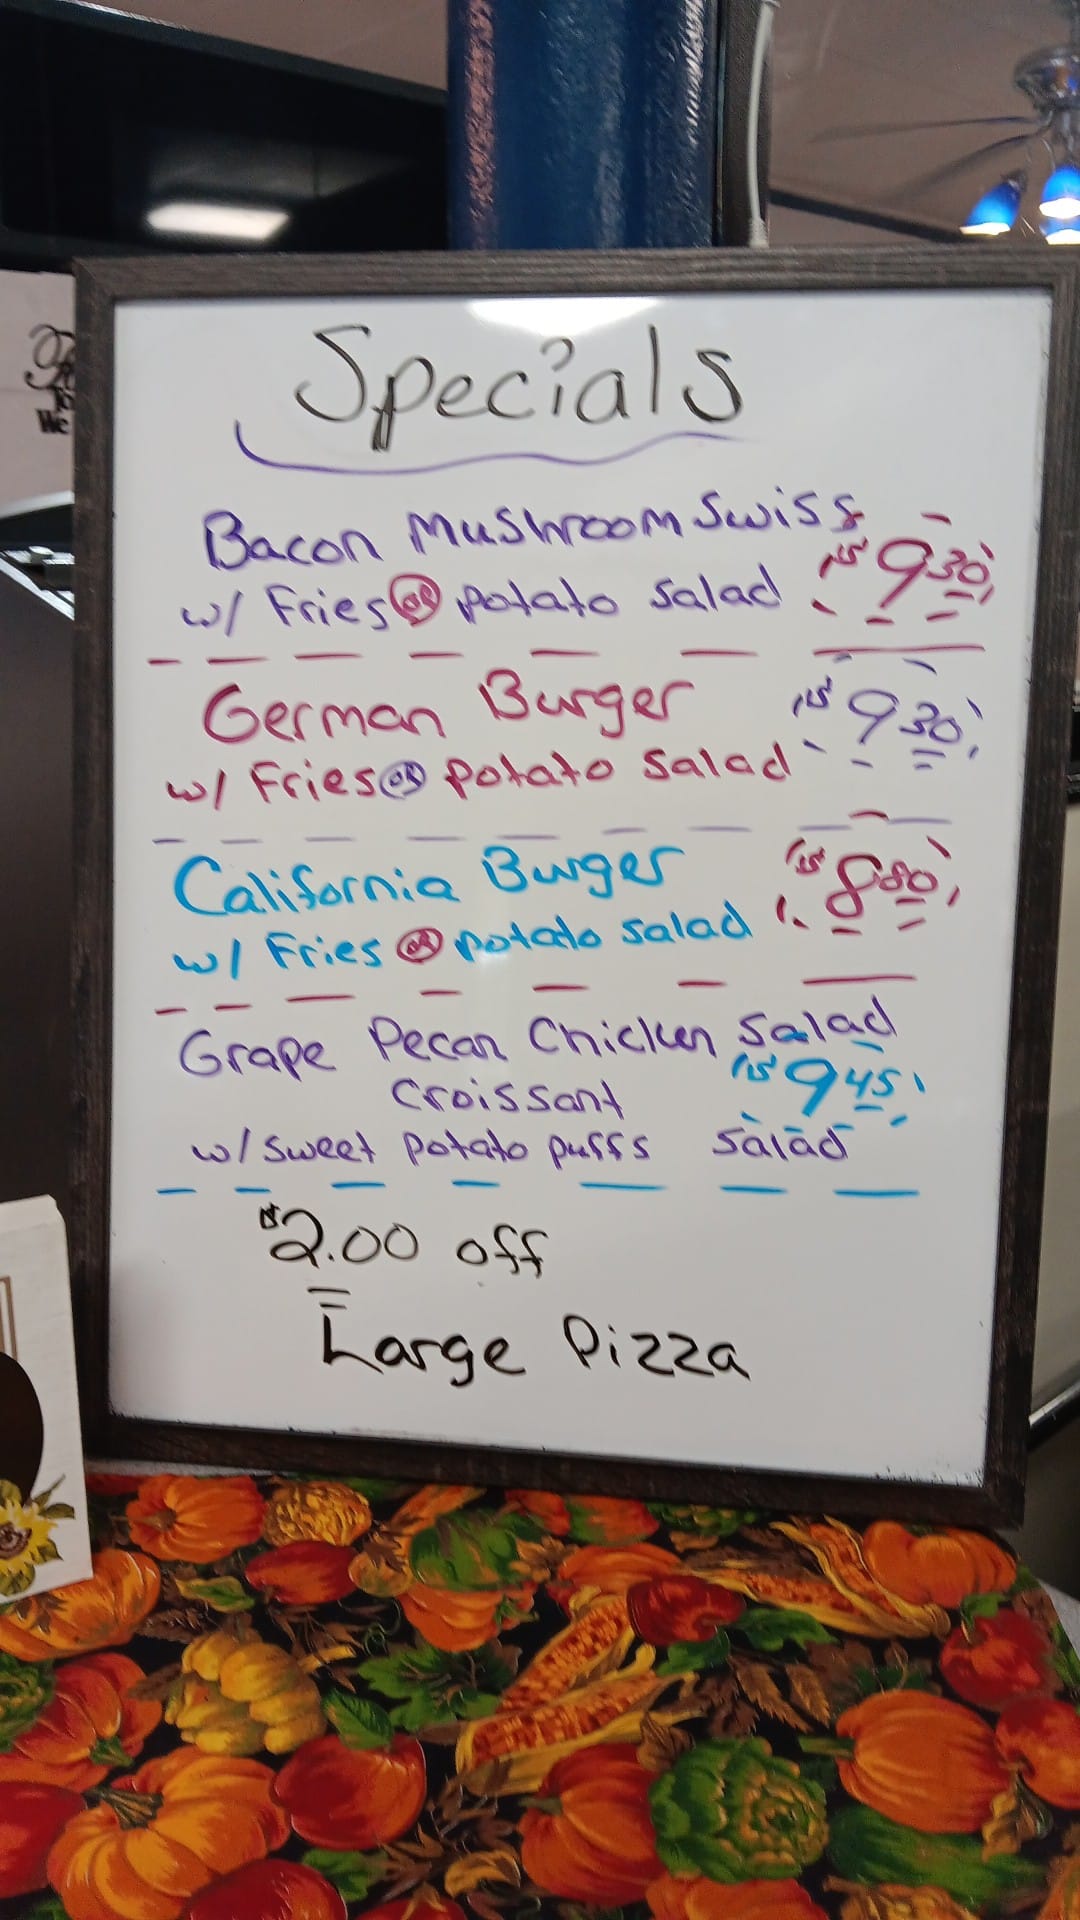 Specials
Bacon Mushroom Swiss
w/ Fries or potato salad $9.30
German Burger
w/ Fries or potato salad $9.30
California Burger
w/ Fries or potato salad $8.80
Grape Pecan Chicken Salad
Croissant $9.45
w/ sweet potato puffs salad
$2.00 off
Large Pizza
We